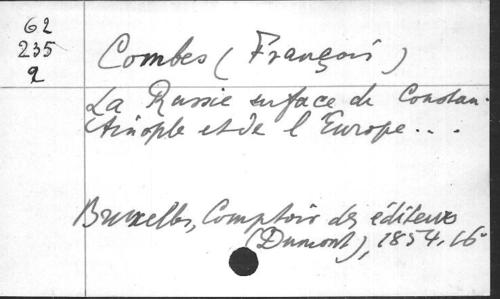 62
235
2
Combes (François)
La Russie en face de Constan-
tinople et de l'Europe...
Bruxelles, Comptoir des éditeurs
(Dumont), 1854, 16°